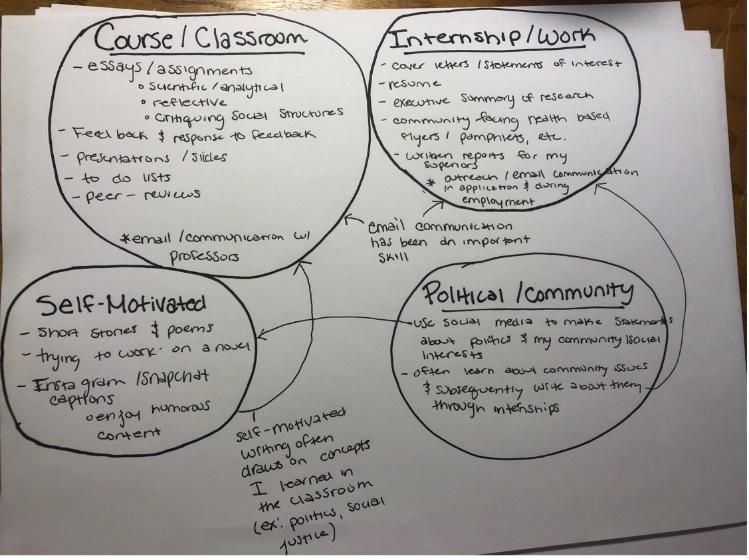 Course / Classroom
- essays / assignments
o scientific / analytical
o reflective
o critiquing social structures
- Feedback & response to feedback
- presentations / slides
- to do lists
- peer-reviews
*email / communication w/
professors
Internship/Work
- cover letters / statements of interest
- resume
- executive summary of research
- community facing health based
flyers / pamphlets, etc.
- written reports for my
superiors
* outreach / email communication
in application & during
employment
email communication
has been an important
skill
Self-Motivated
- short stories & poems
- trying to work on a novel
- Instagram / Snapchat
captions
o enjoy humorous
content
self-motivated
writing often
draws on concepts
I learned in
the classroom
(ex: politics, social
justice)
Political / Community
- use social media to make statements
about politics & my community / social
interests
- often learn about community issues
& subsequently write about them
through internships